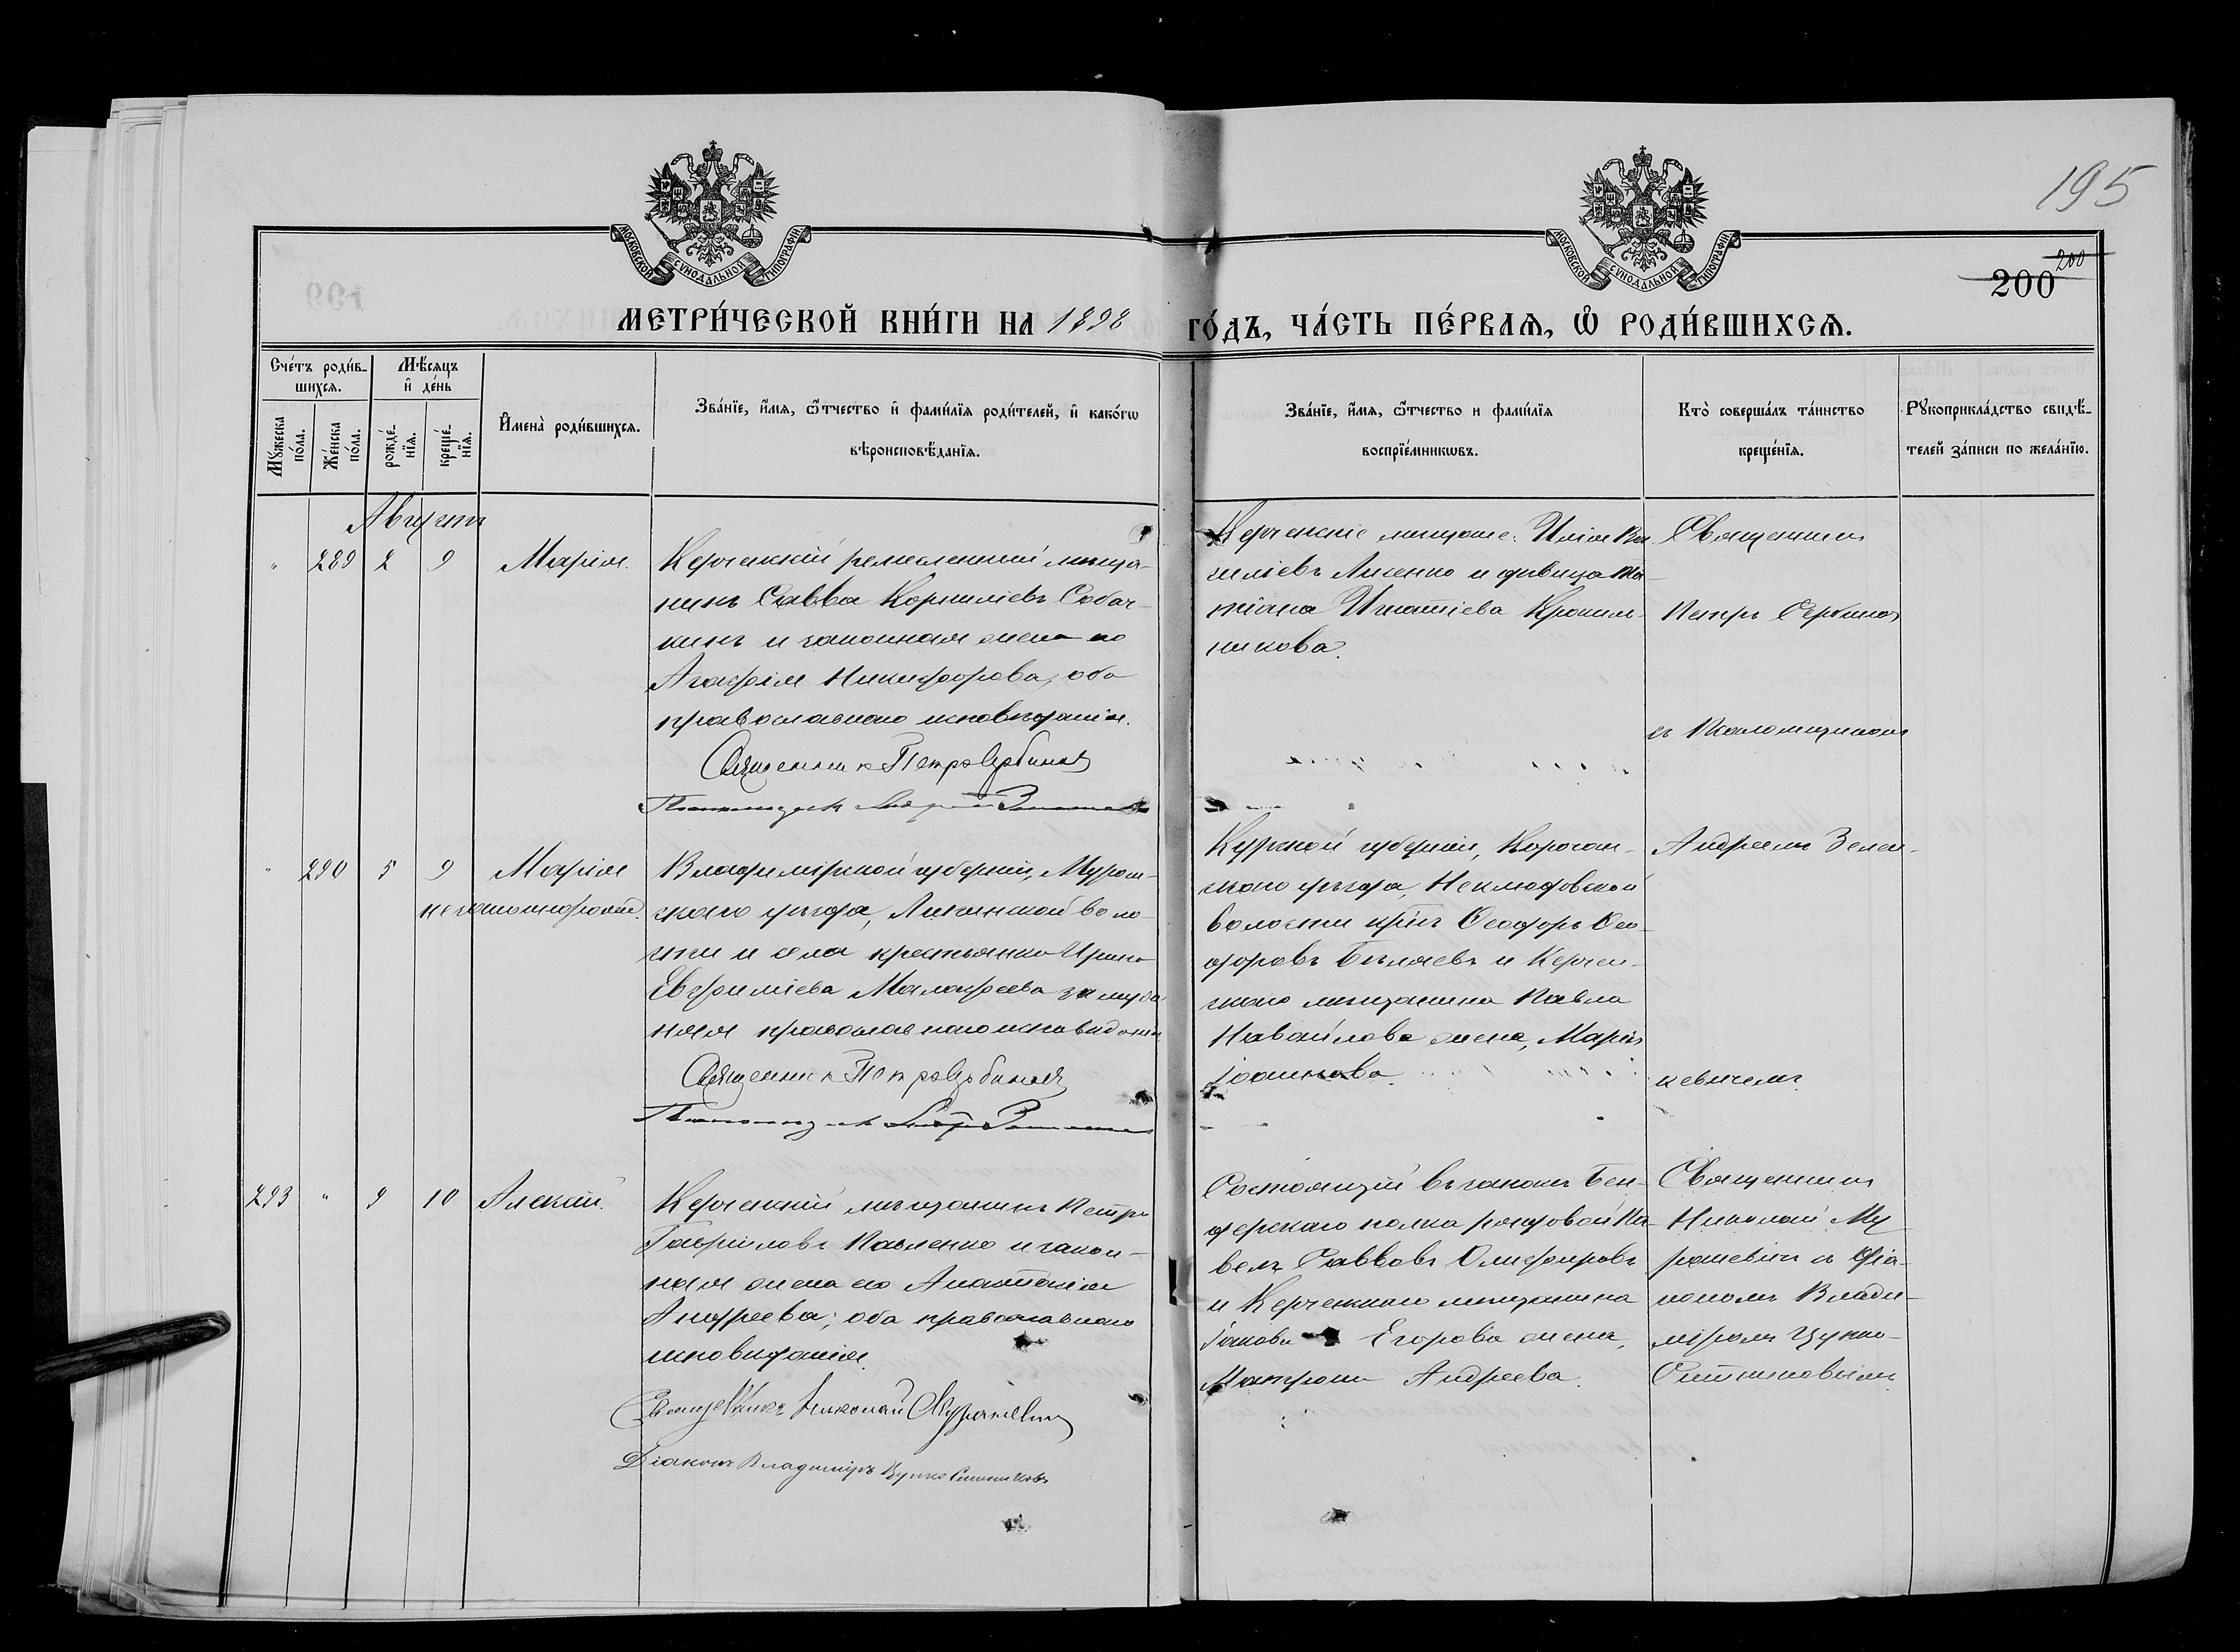 195
200
200
МОСКОВСКОЙ СУНОДАЛЬНОЙ ТИПОГРАФІИ
МОСКОВСКОЙ СУНОДАЛЬНОЙ ТИПОГРАФІИ
МЕТРИ́ЧЕСКОЙ КНИ́ГИ НА 1898 ГО́ДЪ, ЧА́СТЬ ПЕ́РВАѦ, Ѡ҆ РОДИ́ВШИХСѦ.
Сче́тъ роди́в-
шихсѧ.
Мꙋ́жеска
по́ла.
Же́нска
по́ла.
Мѣ́сѧцъ
и҆ де́нь
рожде́-
нїѧ.
креще́-
нїѧ.
И҆мена̀ роди́вшихсѧ.
Зва́нїе, и҆́мѧ, ѻ҆́тчество и҆ фами́лїѧ роди́телей, и҆ како́гѡ
вѣроисповѣ́данїѧ.
Зва́нїе, и҆́мѧ, ѻ҆́тчество и фами́лїѧ
воспрїе́мникѡвъ.
Кто̀ соверша́лъ та́инство
креще́нїѧ.
Рꙋкоприкла́дство свидѣ́-
телей за́писи по жела́нїю.
Августъ
" 289 2 9 Марія.
Керченскій ремесленный мѣща-
нинъ Савва Корниліевъ Собач-
кинъ и законная жена его
Агафія Никифорова, оба
православнаго исповѣданія.
Священникъ Петръ Сербиновъ
Псаломщикъ Андрей
Керченскіе мѣщане: Илія Ва-
силіевъ Лисенко и дѣвица Та-
тіана Игнатіева Кропив-
никова.
Священникъ
Петръ Сербиновъ
съ Псаломщикомъ
" 290 5 9 Марія
незаконнорожд.
Владимірской губерніи, Муром-
скаго уѣзда, Ляхинской воло-
сти и села крестьянка Ирина
Евфиміева Малафеева
православнаго исповѣданія
Священникъ Петръ Сербиновъ
Псаломщикъ Андрей
Курской губерніи, Корочан-
скаго уѣзда, Неклюдовской
волости кр-нъ Ѳеодоръ Ѳео-
доровъ Бѣляевъ и Керчен-
скаго мѣщанина Павла
Навайлова жена, Марія
Іоаннова.
Андреемъ Зелен-
кевичемъ.
293 " 9 10 Алексій.
Керченскій мѣщанинъ Петръ
Гавріиловъ Павленко и закон-
ная жена его Анастасія
Андреева; оба православнаго
исповѣданія.
Священникъ Николай Мурашевичъ
Діаконъ Владиміръ Цунко Ситниковъ
Состоящій въ запасѣ Бен-
дерскаго полка рядовой Па-
велъ Савовъ Олифировъ
и Керченскаго мѣщанина
Іакова Егорова жена,
Матрона Андреева.
Священникъ
Николай Му-
рашевичъ съ діа-
кономъ Влади-
міромъ Цунко-
Ситниковымъ